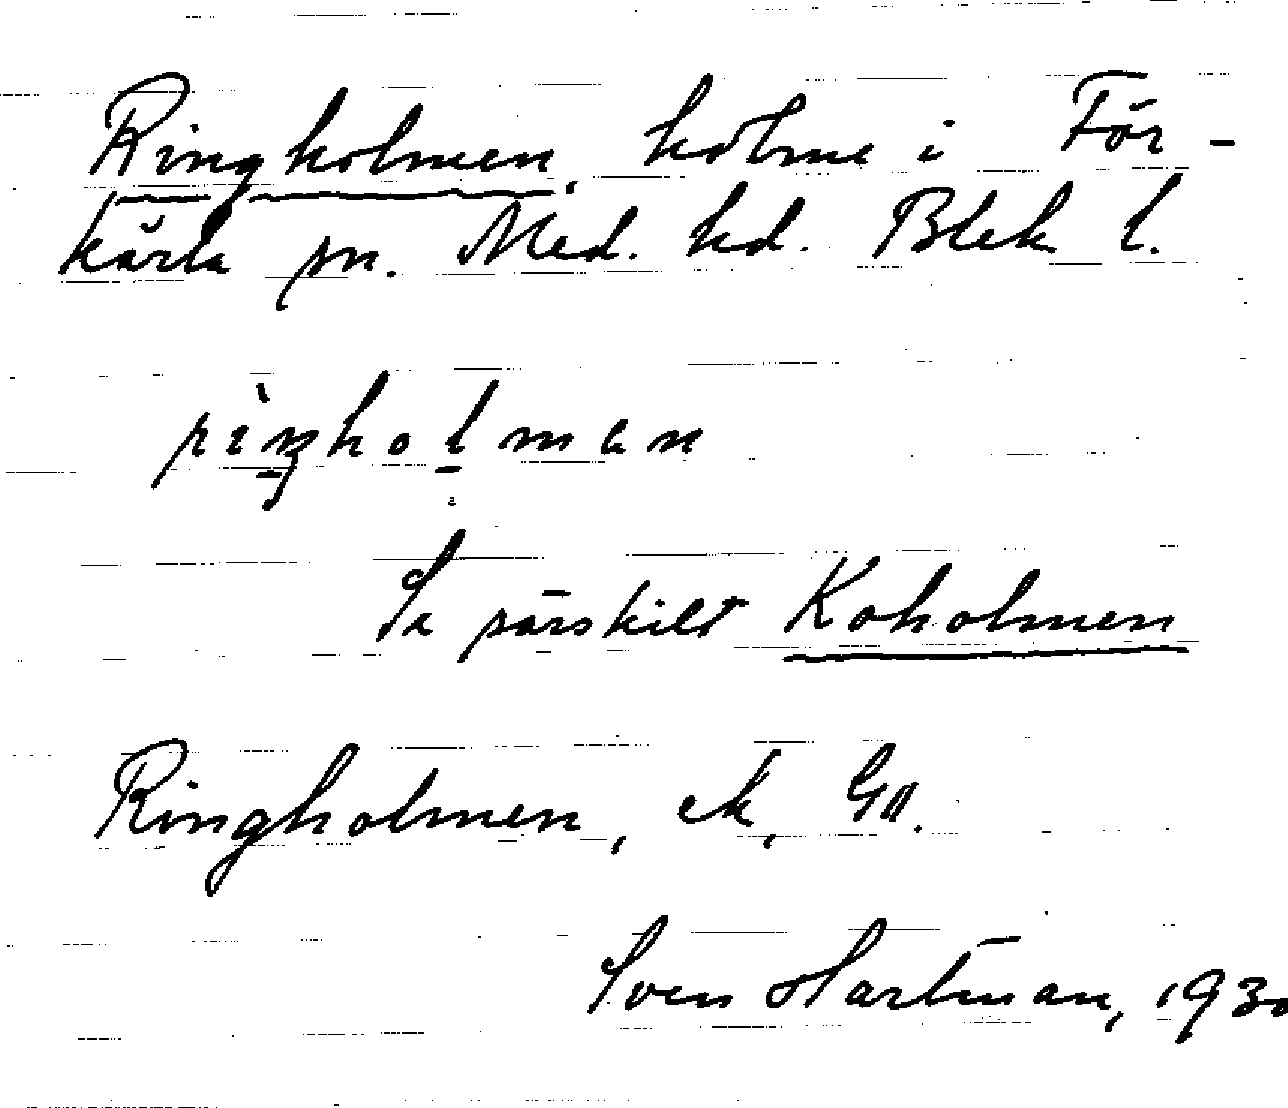 Ringholmen, holme i För-
kärla sn. Med. hd. Blek l.
Se särskilt Koholmen
Ringholmen, ek,
Sven Hartman, 1930